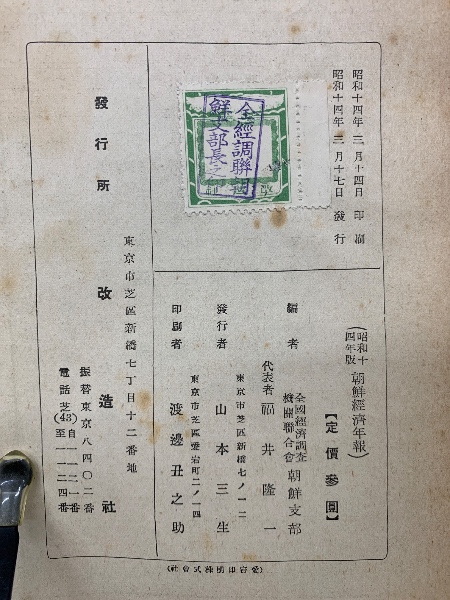 昭和十四年三月十四日印刷
昭和十四年三月十七日發行
全經調聯
鮮支部長之
(昭和十四年版)朝鮮經濟年報
【定價參圓】
編者 全國經濟調査機關聯合會朝鮮支部
代表者 福井隆一
東京市芝區新橋七ノ一二
發行者 山本三生
東京市芝區愛宕町二ノ一四
印刷者 渡邊丑之助
東京市芝區新橋七丁目十二番地
發行所 改造社
振替東京八四〇二番
電話芝(43)自一一二一番至一一二四番
(愛宕印刷株式會社)